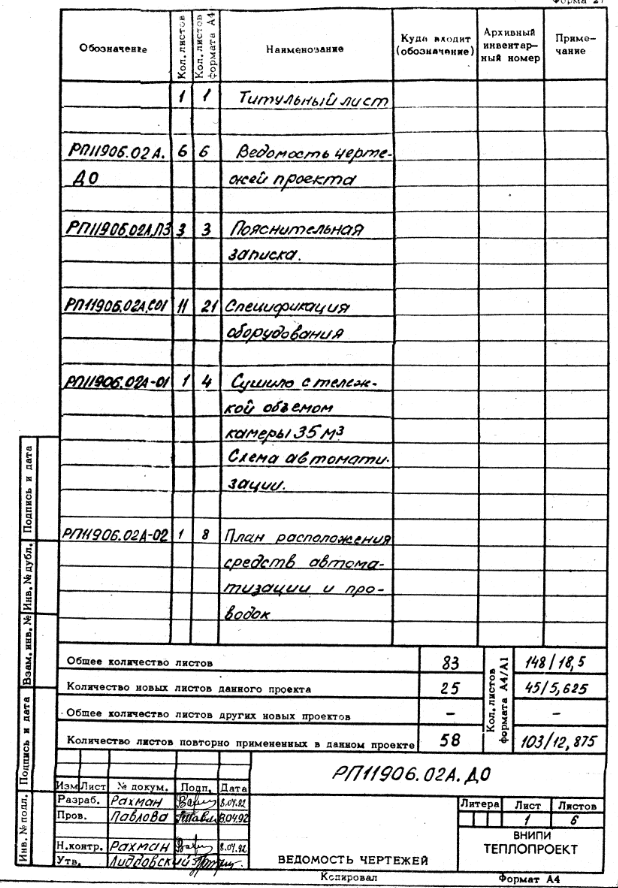 Форма 27
Обозначение Кол. листов Кол. листов формата А4 Наименование Куда входит (обозначение) Архивный инвентарный номер Примечание
1 1 Титульный лист
РП11906.02А. 6 6 Ведомость черте-
ДО жей проекта
РП11906.02А.ПЗ 3 3 Пояснительная
записка.
РП11906.02А.СО1 11 21 Спецификация
оборудования
РП11906.02А-01 1 4 Сушило с тележ-
кой объемом
камеры 35 м3
Схема автомати-
зации.
РП11906.02А-02 1 8 План расположения
средств автома-
тизации и про-
водок
Общее количество листов 83 Кол. листов формата А4/А1 148/18,5
Количество новых листов данного проекта 25 45/5,625
Общее количество листов других новых проектов – –
Количество листов повторно примененных в данном проекте 58 103/12,875
РП11906.02А.ДО
Изм Лист № докум. Подп. Дата
Разраб. Рахман 8.04.92
Пров. Павлова 8.04.92
Н.контр. Рахман 8.04.92
Утв. Лиддовский
ВЕДОМОСТЬ ЧЕРТЕЖЕЙ
Литера Лист Листов
1 6
ВНИПИ
ТЕПЛОПРОЕКТ
Копировал Формат А4
Инв. № подл. Подпись и дата Взам. инв. № Инв. № дубл. Подпись и дата